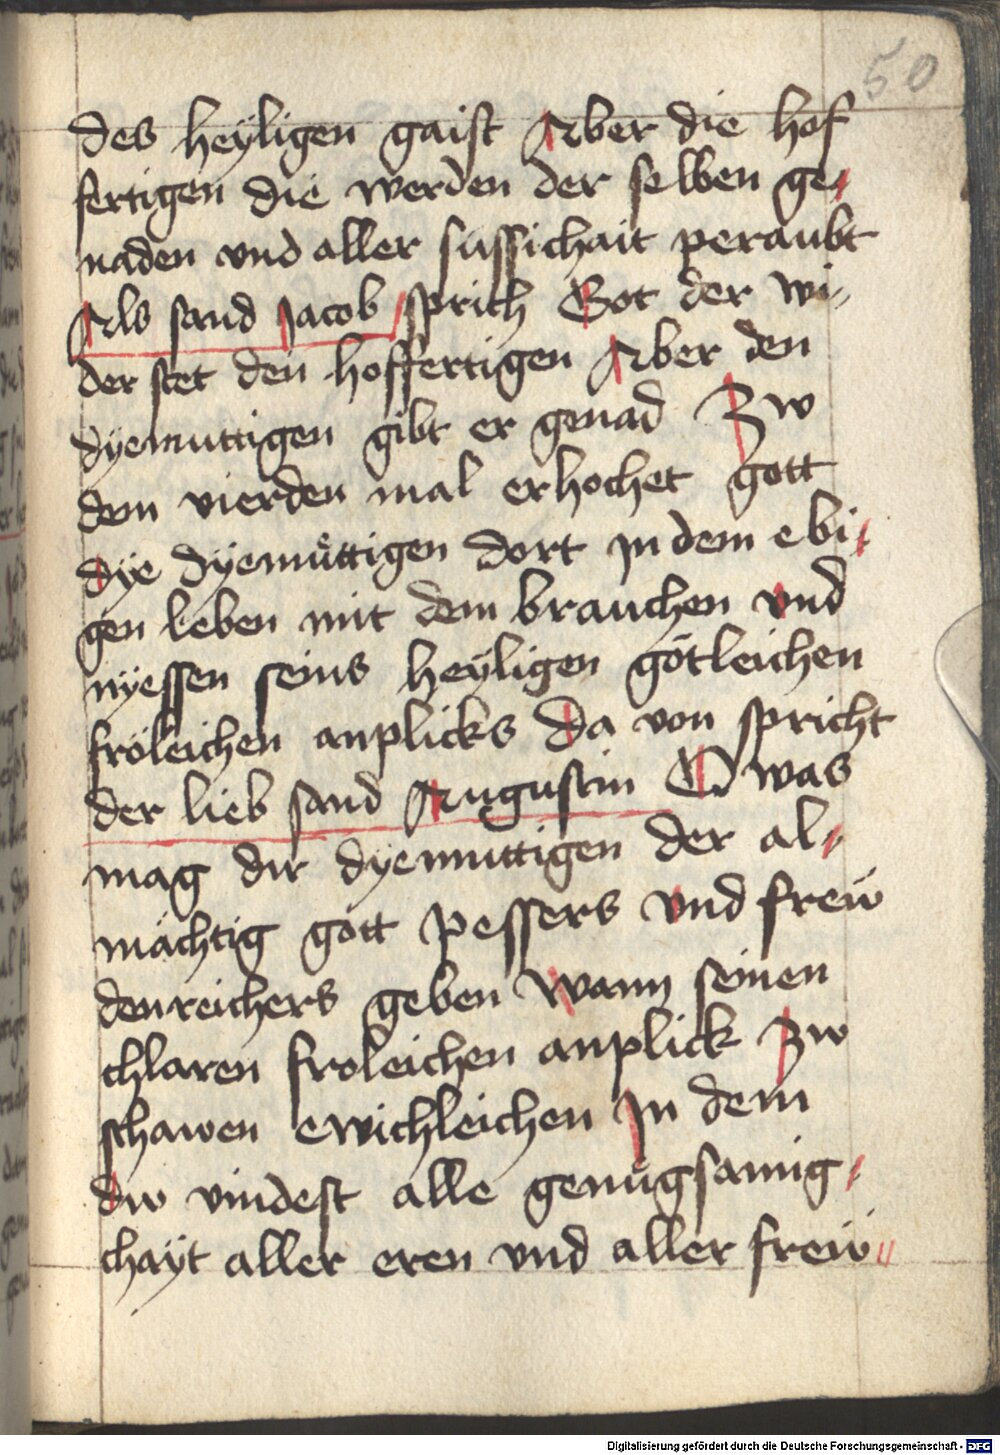 50
des heÿligen gaist Aber die hof
fertigen die werden der selben ge-
naden vnd aller sussichait peraubt
Als sand Jacob sprich Got der wi-
der stet den hoffertigen Aber den
dyemuttigen gibt er genad Zw
dem vierden mal erhochet gott
dÿe dÿemůttigen dort in dem ebi-
gen leben mit dem brauchen vnd
nÿessen seins heÿligen götleichen
fröleichen anplicks Da von spricht
der lieb sand Augustin O was
mag dir dyemuttigen der al-
mächtig gott pessers vnd freẅ
denreichers geben Wann seinen
chlaren froleichen anplick Zw
schawen ewichleichen In dem
dw vindest alle genůgsamig-
chaÿt aller eren vnd aller freẅ-
Digitalisierung gefördert durch die Deutsche Forschungsgemeinschaft - DFG